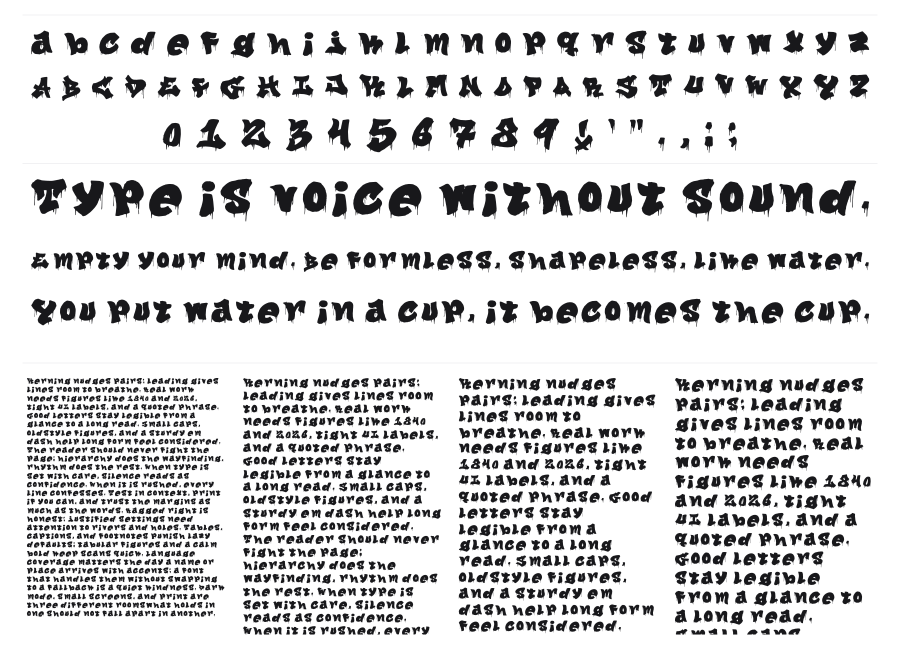 a b c d e f g h i j k l m n o p q r s t u v w x y z
A B C D E F G H I J K L M N O P Q R S T U V W X Y Z
0 1 2 3 4 5 6 7 8 9 ! ' " . , ; :
Type is voice without sound.
Empty your mind. Be formless. Shapeless. like water.
You put water in a cup, it becomes the cup.
Kerning nudges pairs; leading gives
lines room to breathe. Real work
needs figures like 1840 and 2026,
tight UI labels, and a quoted phrase.
Good letters stay legible from a
glance to a long read. Small caps,
oldstyle figures, and a sturdy em
dash help long form feel considered.
The reader should never fight the
page; hierarchy does the wayfinding,
rhythm does the rest. When type is
set with care, silence reads as
confidence. When it is rushed, every
line confesses. Test in context. Print
if you can, and trust the margins as
much as the words. Ragged right is
honest; justified settings need
attention to rivers and holes. Tables,
captions, and footnotes punish lazy
defaults; tabular figures and a calm
bold keep scans quick. Language
coverage matters the day a name or
place arrives with accents; a font
that handles them without swapping
to a fallback is a quiet kindness. Dark
mode, small screens, and print are
three different rooms what holds in
one should not fall apart in another.
Kerning nudges pairs;
leading gives lines room
to breathe. Real work
needs figures like 1840
and 2026, tight UI labels,
and a quoted phrase.
Good letters stay
legible from a glance to
a long read. Small caps,
oldstyle figures, and a
sturdy em dash help long
form feel considered.
The reader should never
fight the page;
hierarchy does the
wayfinding, rhythm does
the rest. When type is
set with care, silence
reads as confidence.
When it is rushed, every
Kerning nudges
pairs; leading gives
lines room to
breathe. Real work
needs figures like
1840 and 2026, tight
UI labels, and a
quoted phrase. Good
letters stay
legible from a
glance to a long
read. Small caps,
oldstyle figures,
and a sturdy em
dash help long form
feel considered.
Kerning nudges
pairs; leading
gives lines room
to breathe. Real
work needs
figures like 1840
and 2026, tight
UI labels, and a
quoted phrase.
Good letters
stay legible
from a glance to
a long read.
Small caps,